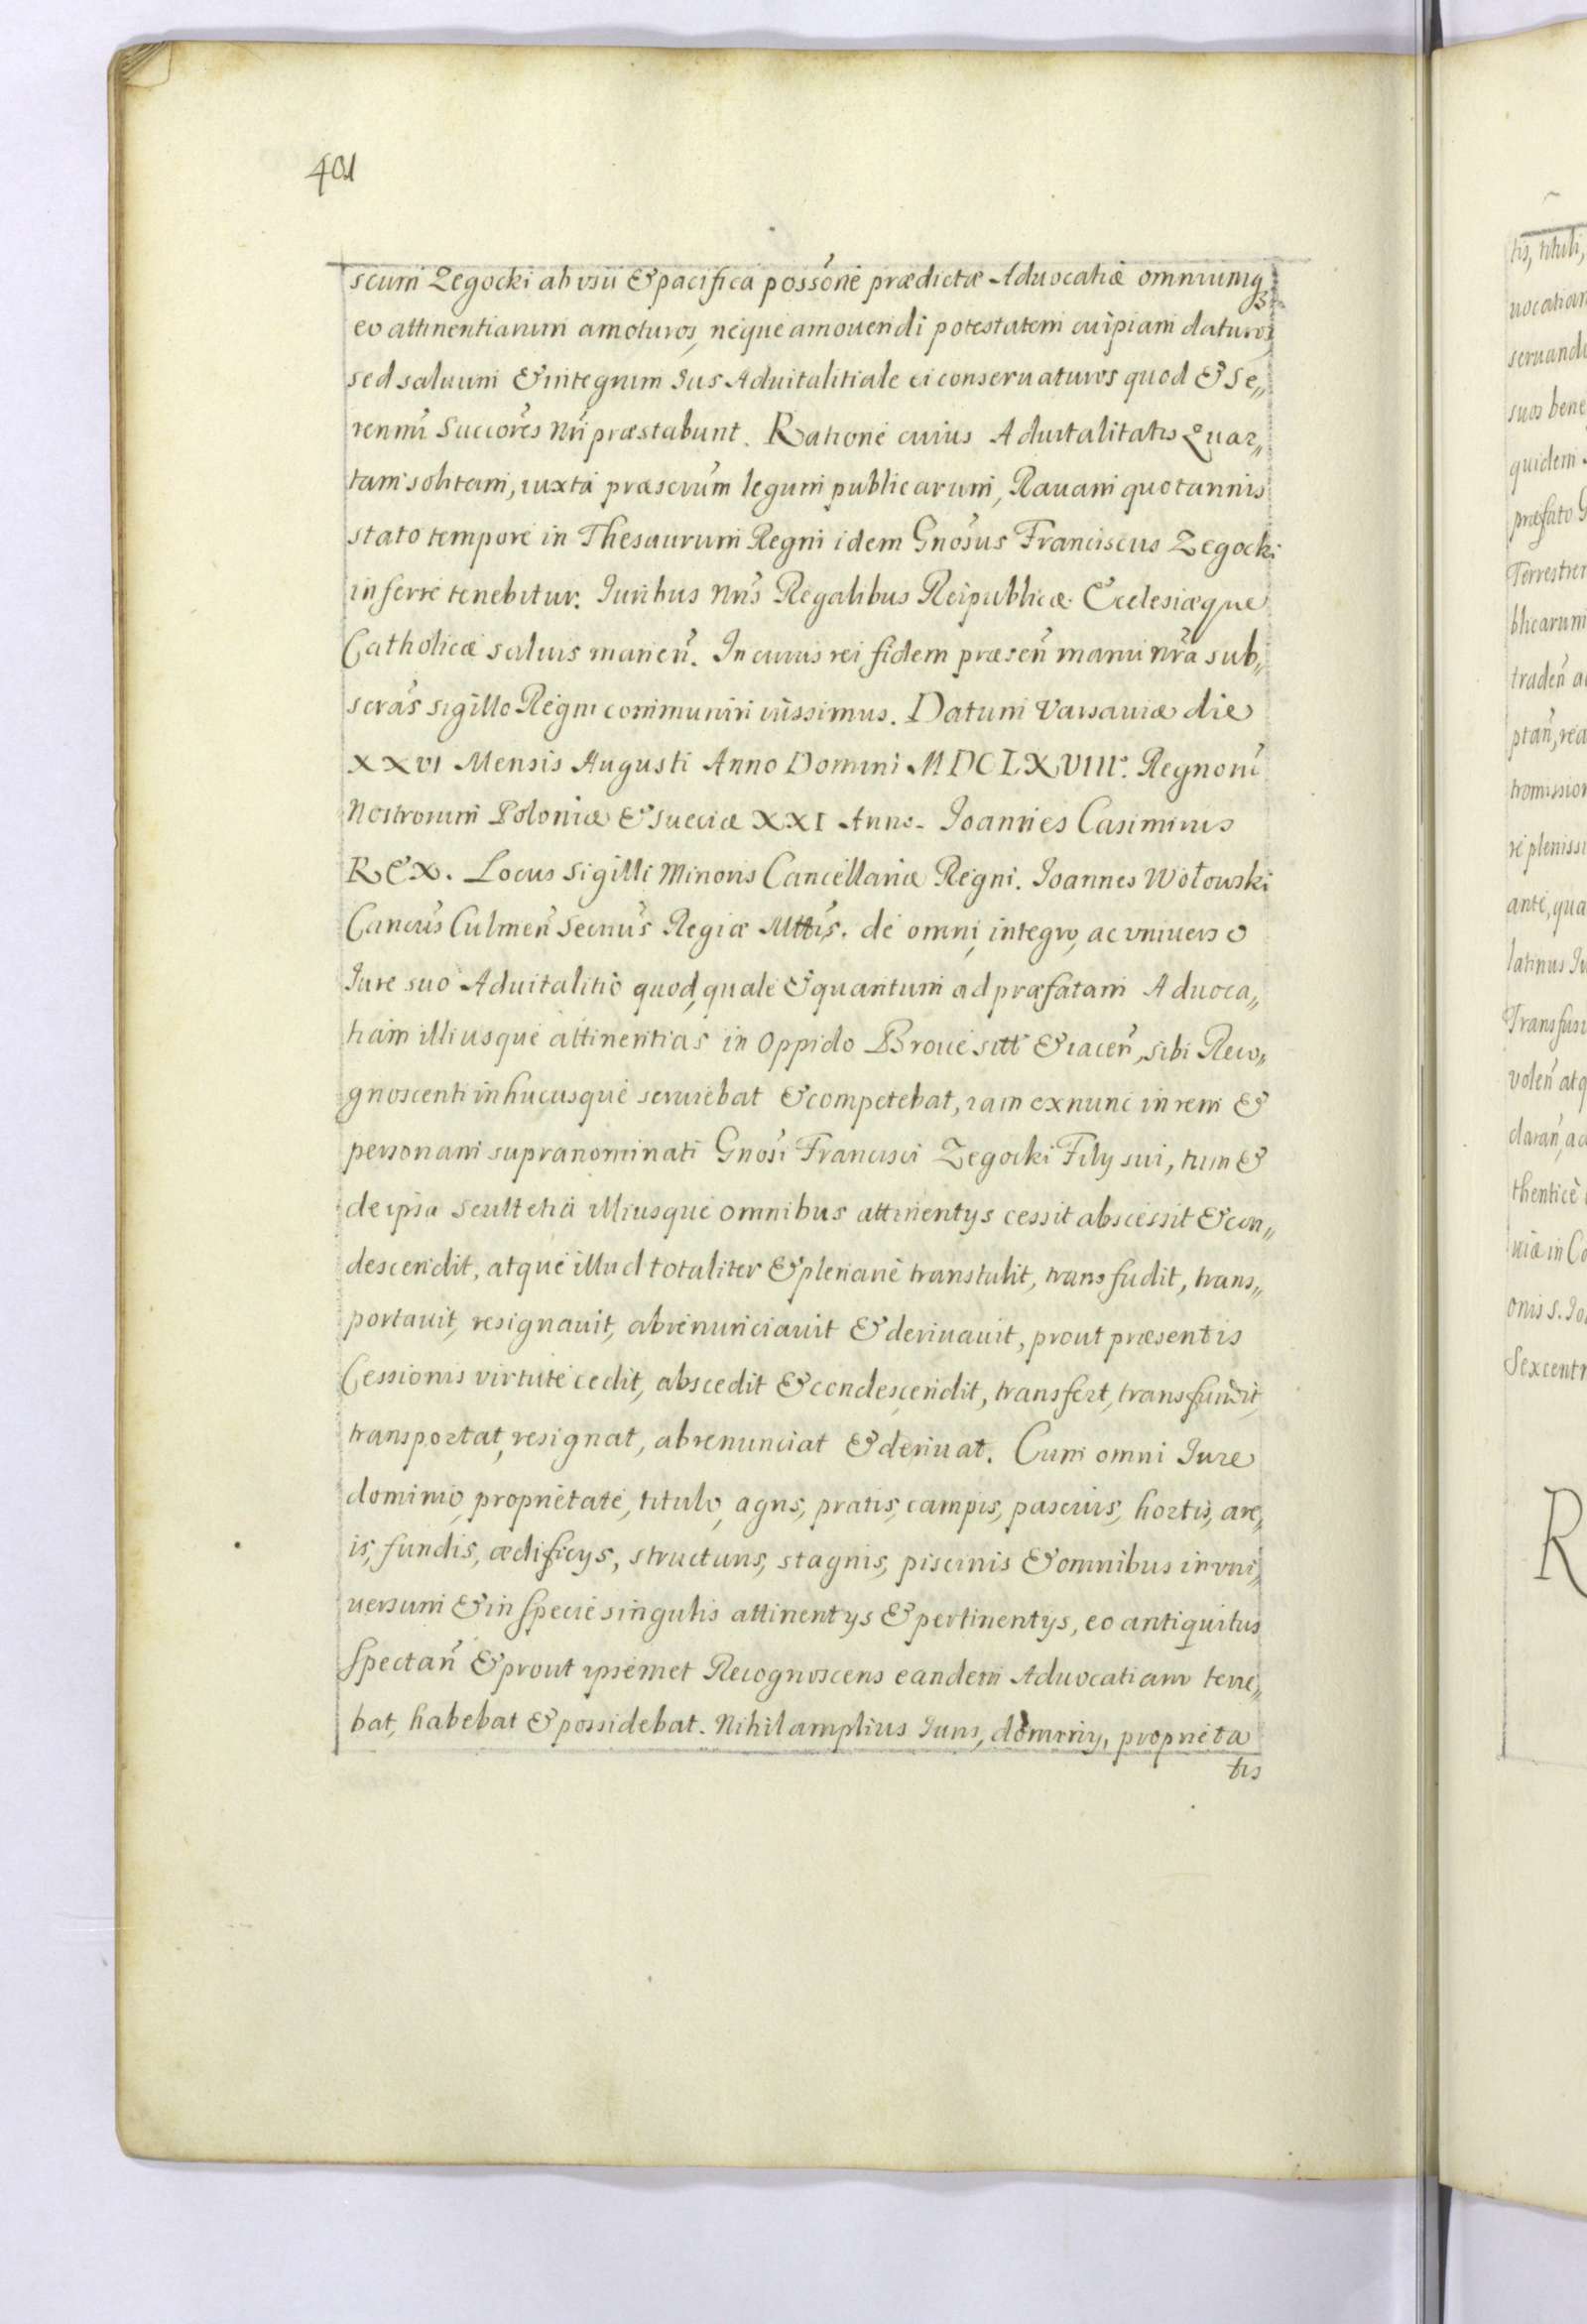 401
scum Zegocki ab vsu & pacifica possone prædictæ Aduocatiæ omniumq₃
eo attinentiarum amoturos, neque amouendi potestatem cuipiam daturos
sed saluum & integrum Jus Aduitalitiale ei conseruaturos quod & Se„
rennmi Succores nri præstabunt. Ratione cuius Aduitalitatis Quar„
tam solitam, iuxta præscrum legum publicarum, Rauam quotannis
stato tempore in Thesaurum Regni idem Gnosus Franciscus Zegocki
inferre tenebitur. Juribus nris Regalibus Reipublicæ Ecclesiæque
Catholicæ saluis manen. In cuius rei fidem præsen manu nra sub„
scras sigillo Regni communiri iussimus. Datum Varsauiæ die
XXVI Mensis Augusti Anno Domini MDCLXVIII°. Regnoru
Nostrorum Poloniæ & Sueciæ XXI Anno. Joannes Casimirus
REX. Locus Sigilli Minoris Cancellariæ Regni. Joannes Wołowski
Cancrus Culmen Secrius Regiæ Mttis. de omni, integro, ac vniuerso
Jure suo Aduitalitio quod, quale & quantum ad præfatam Aduoca„
tiam illiusque attinentias in Oppido Broue sitt & iacen, sibi Reco„
gnoscenti inhucusque seruiebat & competebat, iam exnunc in rem &
personam supranominati Gnosi Francisci Zegocki Filij sui, tum &
de ipsa scultetia illiusque omnibus attinentijs cessit abscessit & con„
descendit, atque illud totaliter & plenarie transtulit, transfudit, trans„
portauit, resignauit, abrenunciauit & deriuauit, prout præsentis
Cessionis virtute cedit, abscedit & condescendit, transfert, transfundit,
transportat, resignat, abrenunciat & deriuat. Cum omni Jure
dominio, proprietate, titulo, agris, pratis, campis, pascuis, hortis, are„
is, fundis, ædificijs, structuris, stagnis, piscinis & omnibus in vni„
uersum & in specie singulis attinentijs & pertinentijs, eo antiquitus
spectan & prout ipsemet Recognoscens eandem Aduocatiam tene„
bat, habebat & possidebat. Nihil amplius Juris, dominij, proprieta
tis